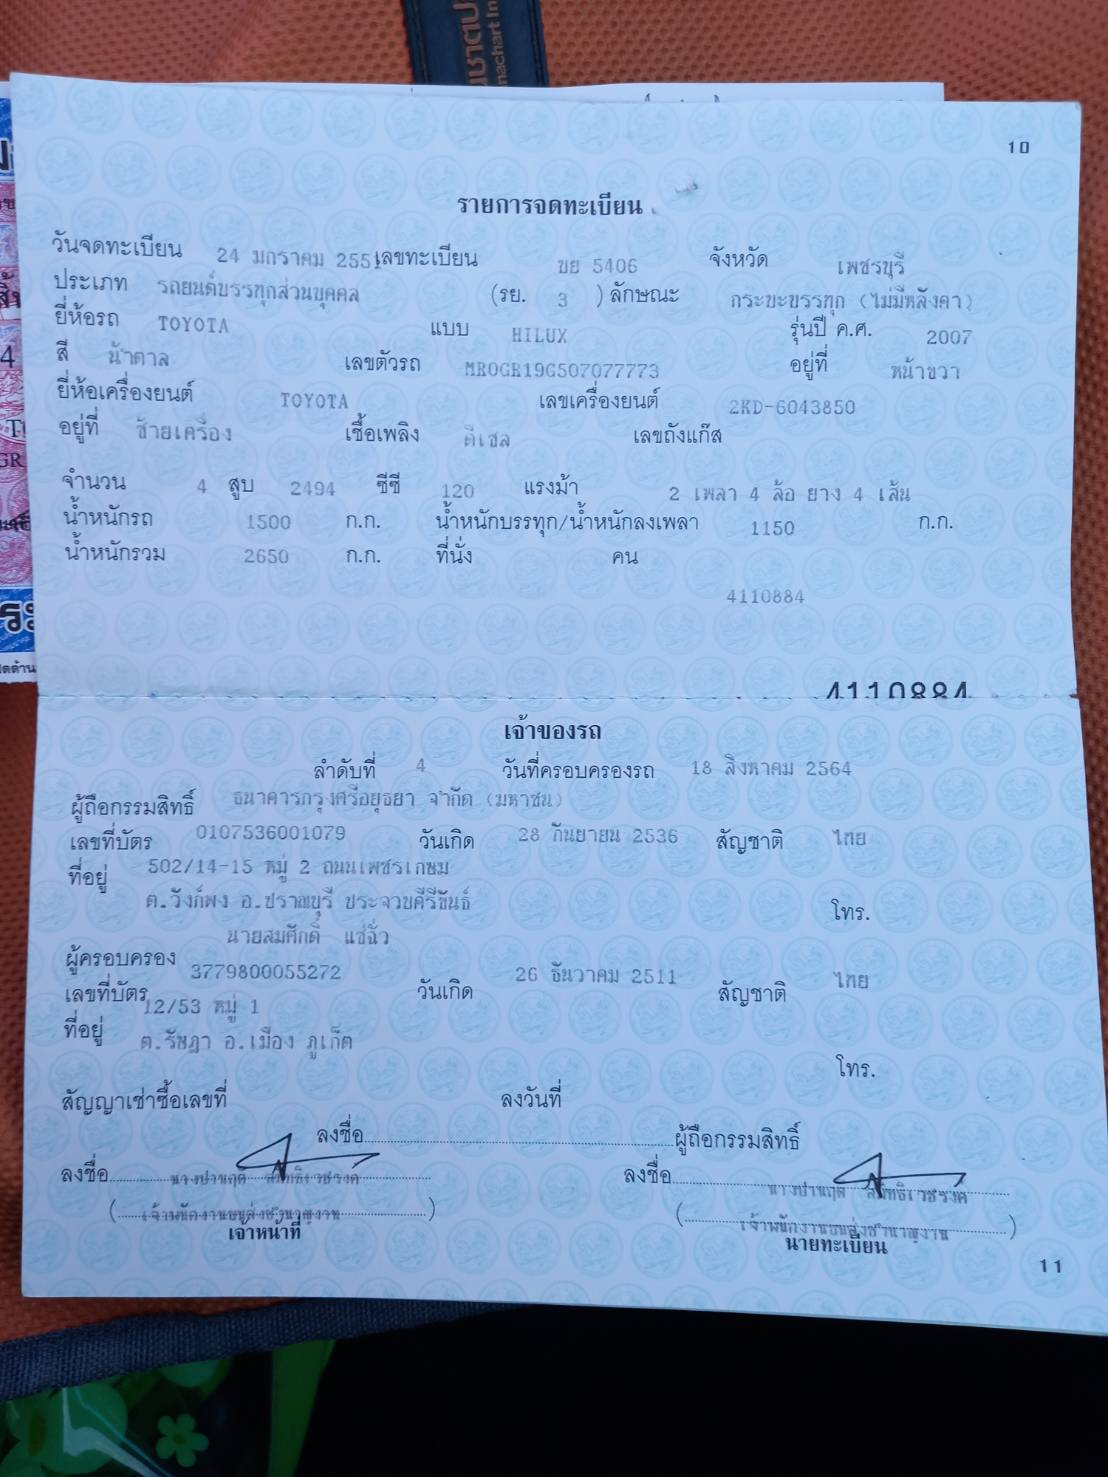 10
รายการจดทะเบียน
วันจดทะเบียน 24 มกราคม 2551 เลขทะเบียน ขย 5406 จังหวัด เพชรบุรี
ประเภท รถยนต์บรรทุกส่วนบุคคล (รย. 3 ) ลักษณะ กระบะบรรทุก (ไม่มีหลังคา)
ยี่ห้อรถ TOYOTA แบบ HILUX รุ่นปี ค.ศ. 2007
สี น้ำตาล เลขตัวรถ MR0GR19G507077773 อยู่ที่ หน้าขวา
ยี่ห้อเครื่องยนต์ TOYOTA เลขเครื่องยนต์ 2KD-6043850
อยู่ที่ ซ้ายเครื่อง เชื้อเพลิง ดีเซล เลขถังแก๊ส
จำนวน 4 สูบ 2494 ซีซี 120 แรงม้า 2 เพลา 4 ล้อ ยาง 4 เส้น
น้ำหนักรถ 1500 ก.ก. น้ำหนักบรรทุก/น้ำหนักลงเพลา 1150 ก.ก.
น้ำหนักรวม 2650 ก.ก. ที่นั่ง คน
4110884
4110884
เจ้าของรถ
ลำดับที่ 4 วันที่ครอบครองรถ 18 สิงหาคม 2564
ผู้ถือกรรมสิทธิ์ ธนาคารกรุงศรีอยุธยา จำกัด (มหาชน)
เลขที่บัตร 0107536001079 วันเกิด 28 กันยายน 2536 สัญชาติ ไทย
ที่อยู่ 502/14-15 หมู่ 2 ถนนเพชรเกษม
ต.วังก์พง อ.ปราณบุรี ประจวบคีรีขันธ์ โทร.
ผู้ครอบครอง นายสมศักดิ์ แซ่ฉั่ว
เลขที่บัตร 3779800055272 วันเกิด 26 ธันวาคม 2511 สัญชาติ ไทย
ที่อยู่ 12/53 หมู่ 1
ต.รัษฎา อ.เมือง ภูเก็ต
โทร.
สัญญาเช่าซื้อเลขที่ ลงวันที่
ลงชื่อ ผู้ถือกรรมสิทธิ์
ลงชื่อ ลงชื่อ
(เจ้าพนักงานขนส่งชำนาญงาน) (เจ้าพนักงานขนส่งชำนาญงาน)
เจ้าหน้าที่ นายทะเบียน
11